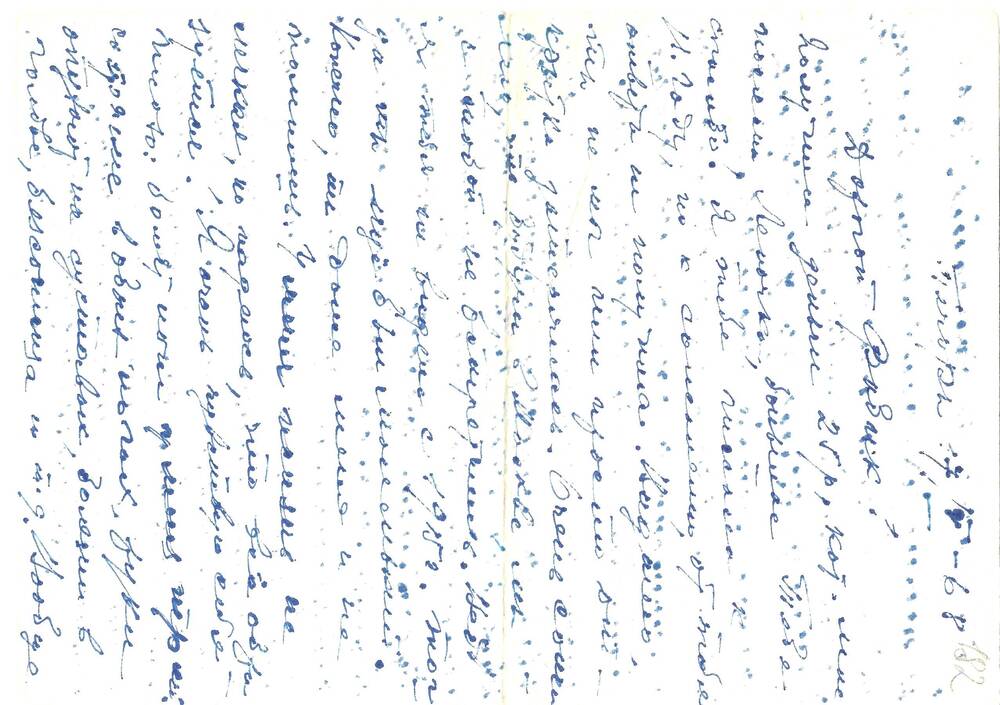 182
Печоры 17, IV - 68
Дорогой Фабик!
Получила деньги 25 р, кот. мне
послала Леночка, большое Тебе
спасибо! Я тебе писала к
Н. Году, но к сожалению, от тебя
ответа не получила. Видимо,
или просто от-
крытка затерялась. Очень сожа
лею, что будучи в Москве мы
с тобой не встретились. Ведь
я тебя не видела с 1915 г. тог
да ты ещё был маленький.
Конечно, ты даже меня и не
помнишь. У меня жизнь не
легкая, но надеюсь, что всё обра
зуется! Я очень чувствую себя
плохо: болят ноги у меня
в обоих ногах, руки
опухают на суставах, болезни в
голове, безсонница и т.д. Вообще